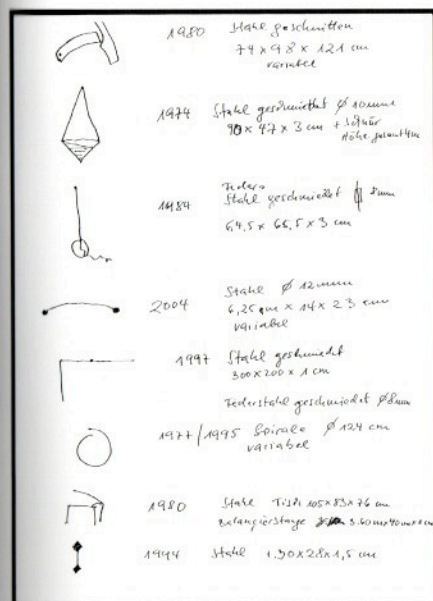 1980 Stahl geschnitten
74 x 98 x 121 cm
variabel
1974 Stahl geschmiedet Ø 10mm
90 x 47 x 3 cm + Schnur
Höhe gesamt 4m
1984 Stahl geschmiedet 8mm
64,5 x 65,5 x 3 cm
2004 Stahl Ø 12mm
6,25 cm x 14 x 23 cm
variabel
1997 Stahl geschmiedet
300 x 200 x 1 cm
Federstahl geschmiedet Ø 8mm
1977/1995 Spirale Ø 124 cm
variabel
1980 Stahl Tisch 105 x 83 x 76 cm
3.60m x 40m x
1944 Stahl 1.30 x 28 x 1,5 cm